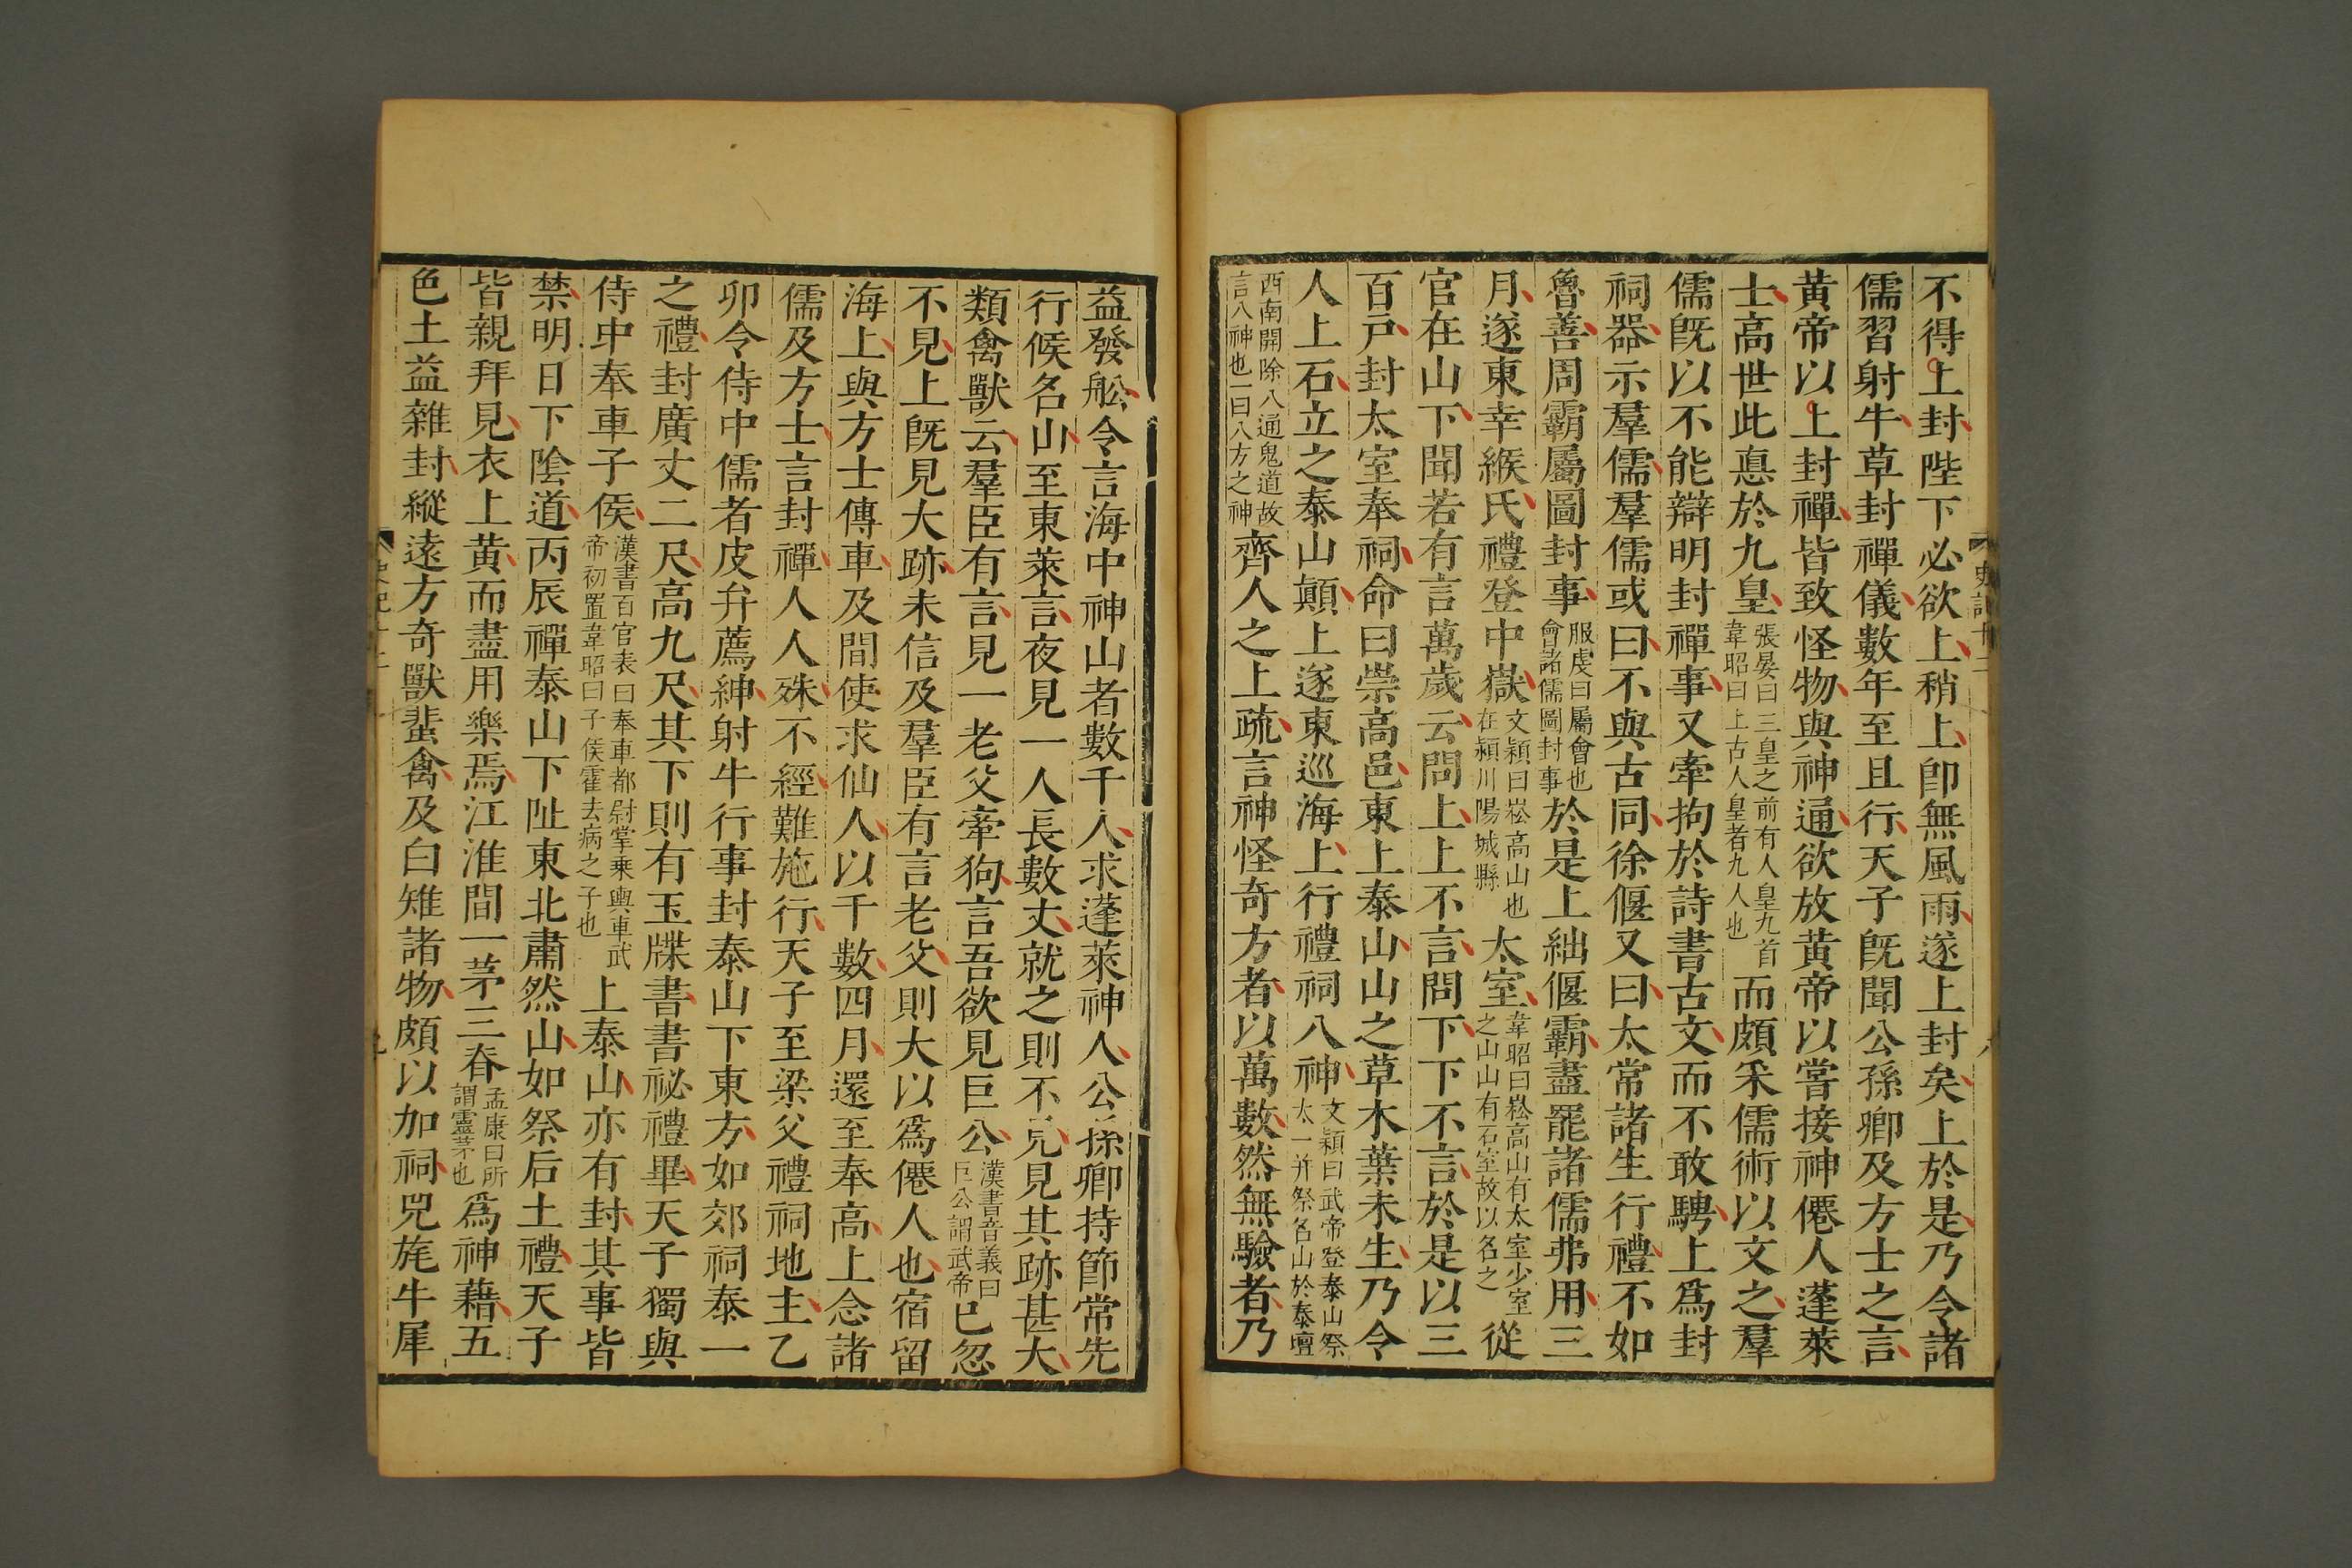 不得上封陛下必欲上稍上卽無風雨遂上封矣上於是乃令諸
儒習射牛草封禪儀數年至且行天子旣聞公孫卿及方士之言
黃帝以上封禪皆致怪物與神通欲放黃帝以嘗接神僊人蓬萊
士高世此悳於九皇張晏曰三皇之前有人皇九首韋昭曰上古人皇者九人也而頗釆儒術以文之羣
儒旣以不能辯明封禪事又牽拘於詩書古文而不敢騁上爲封
祠器示羣儒羣儒或曰不與古同徐偃又曰太常諸生行禮不如
魯善周霸屬圖封事服虔曰屬會也會諸儒圖封事於是上絀偃霸盡罷諸儒弗用三
月遂東幸緱氏禮登中嶽文穎曰崧高山也在潁川陽城縣太室韋昭曰崧高山有太室少室之山山有石室故以名之從
官在山下聞若有言萬歲云問上上不言問下下不言於是以三
百戶封太室奉祠命曰崇高邑東上泰山山之草木葉未生乃令
人上石立之泰山顚上遂東巡海上行禮祠八神文穎曰武帝登泰山祭太一幷祭名山於泰壇
西南開除八通鬼道故言八神也一曰八方之神齊人之上疏言神怪奇方者以萬數然無驗者乃
益發舩令言海中神山者數千人求蓬萊神人公孫卿持節常先
行候名山至東萊言夜見一人長數丈就之則不見見其跡甚大
類禽獸云羣臣有言見一老父牽狗言吾欲見巨公漢書音義曰巨公謂武帝已忽
不見上旣見大跡未信及羣臣有言老父則大以爲僊人也宿留
海上與方士傳車及間使求仙人以千數四月還至奉高上念諸
儒及方士言封禪人人殊不經難施行天子至梁父禮祠地主乙
卯令侍中儒者皮弁薦紳射牛行事封泰山下東方如郊祠泰一
之禮封廣丈二尺高九尺其下則有玉牒書書祕禮畢天子獨與
侍中奉車子侯漢書百官表曰奉車都尉掌乘輿車武帝初置韋昭曰子侯霍去病之子也上泰山亦有封其事皆
禁明日下陰道丙辰禪泰山下阯東北肅然山如祭后土禮天子
皆親拜見衣上黃而盡用樂焉江淮間一茅三脊孟康曰所謂靈茅也爲神藉五
色土益雜封縱遠方奇獸蜚禽及白雉諸物頗以加祠兕旄牛犀